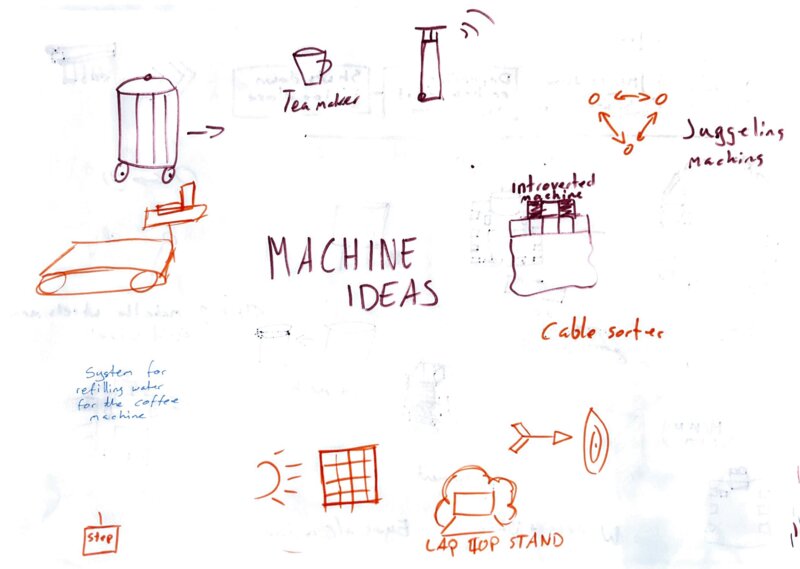 Tea maker
Juggeling
maching
introverted
machine
MACHINE
IDEAS
Cable sorter
System for
refilling water
for the coffee
machine
Step
LAP TOP STAND